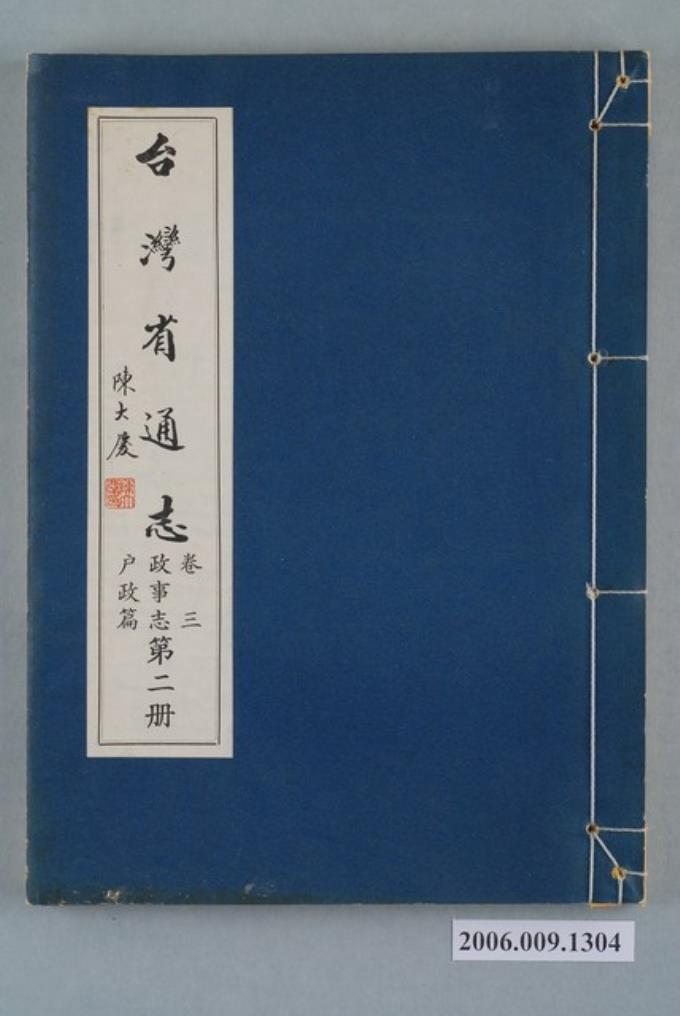 台灣省通志
陳大慶
卷三
政事志
户政篇
第二册
2006.009.1304